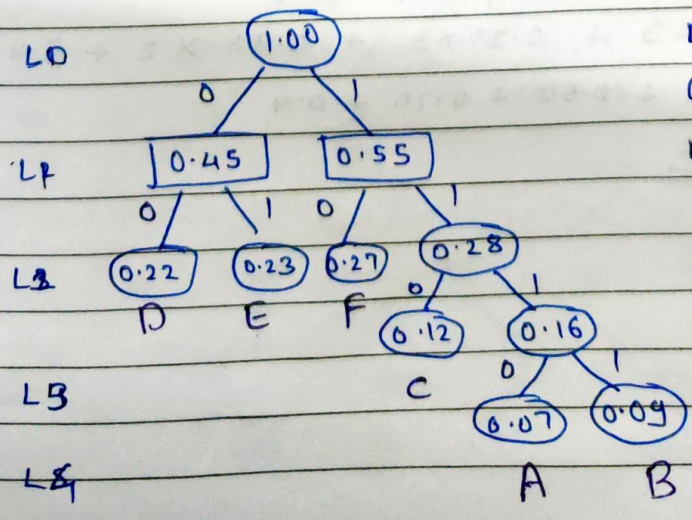 L0 1.00
0 1
L1 0.45 0.55
0 1 0 1
L2 0.22 0.23 0.27 0.28
D E F 0 1
0.12 0.16
L3 C 0 1
0.07 0.09
L4 A B